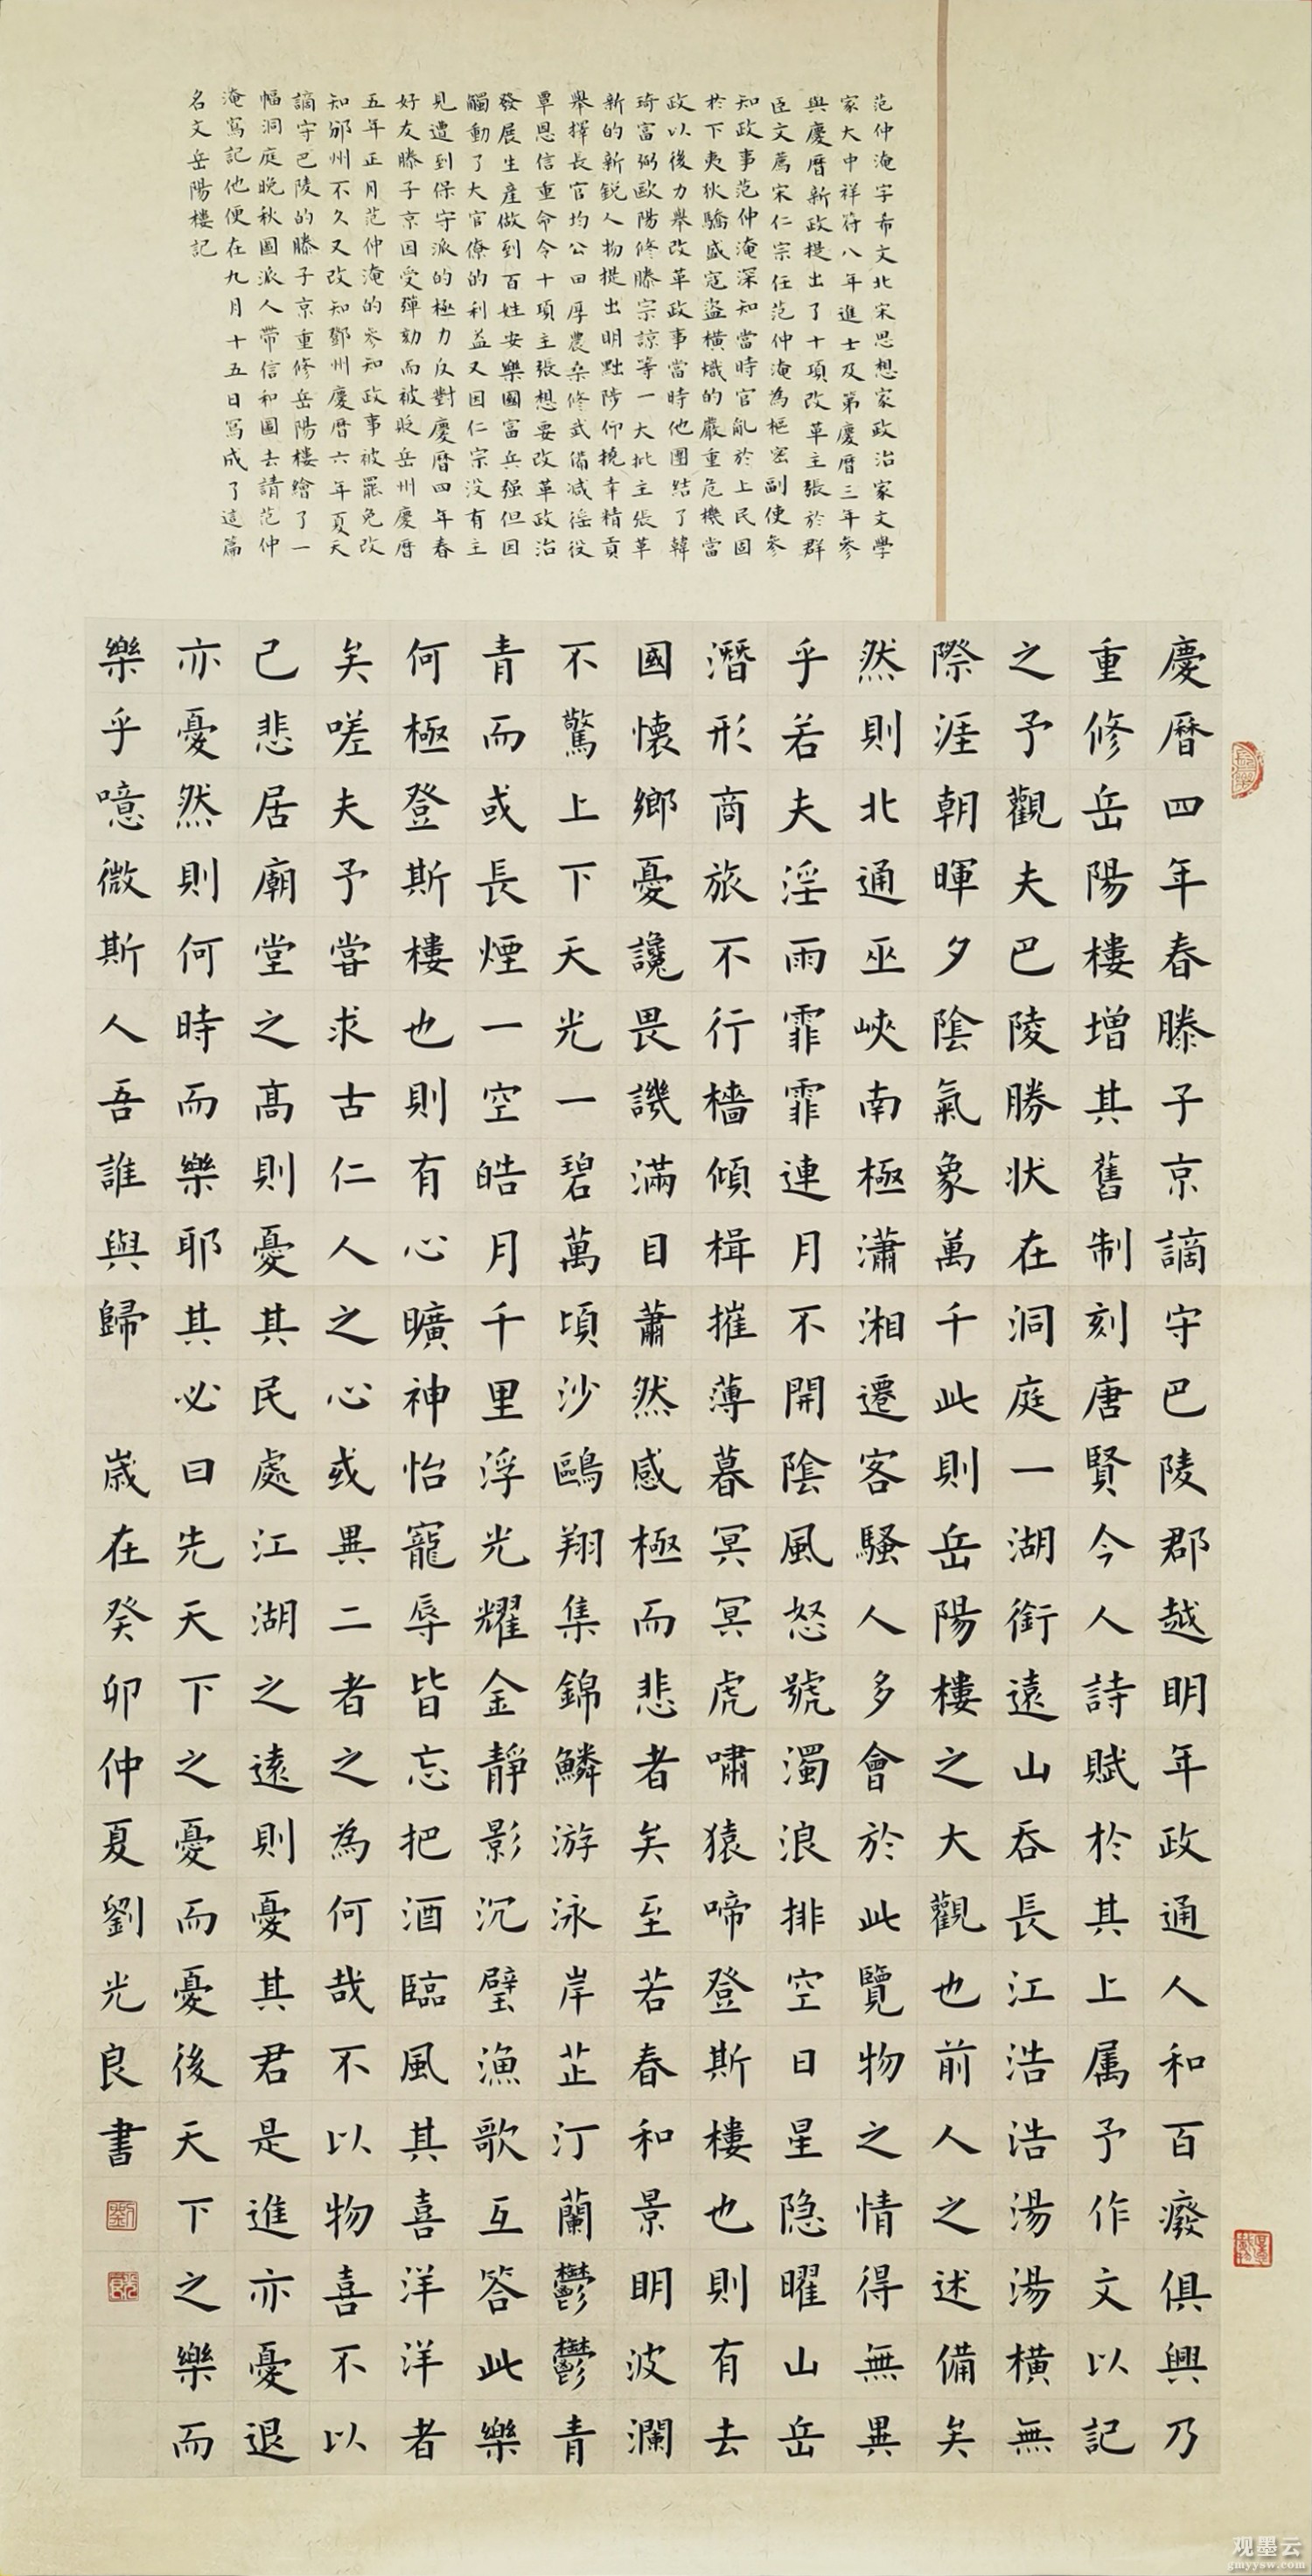 范仲淹字希文北宋思想家政治家文學
家大中祥符八年進士及第慶曆三年參
與慶曆新政提出了十項改革主張於群
臣文薦宋仁宗任范仲淹為樞密副使參
知政事范仲淹深知當時官亂於上民困
於下夷狄驕盛寇盜橫熾的嚴重危機當
政以後力舉改革政事當時他團結了韓
琦富弼歐陽修滕宗諒等一大批主張革
新的新銳人物提出明黜陟仰撓幸精貢
舉擇長官均公田厚農桑修武備減徭役
覃恩信重命令十項主張想要改革政治
發展生產做到百姓安樂國富兵强但因
觸動了大官僚的利益又因仁宗没有主
見遭到保守派的極力反對慶曆四年春
好友滕子京因受彈劾而被貶岳州慶曆
五年正月范仲淹的參知政事被罷免改
知邠州不久又改知鄧州慶曆六年夏天
謫守巴陵的滕子京重修岳陽樓繪了一
幅洞庭晚秋圖派人帶信和圖去請范仲
淹寫記他便在九月十五日寫成了這篇
名文岳陽樓記
慶曆四年春滕子京謫守巴陵郡越明年政通人和百廢俱興乃
重修岳陽樓增其舊制刻唐賢今人詩賦於其上属予作文以記
之予觀夫巴陵勝状在洞庭一湖銜遠山吞長江浩浩湯湯橫無
際涯朝暉夕陰氣象萬千此則岳陽樓之大觀也前人之述備矣
然則北通巫峽南極瀟湘遷客騷人多會於此覽物之情得無異
乎若夫淫雨霏霏連月不開陰風怒號濁浪排空日星隐曜山岳
潛形商旅不行檣傾楫摧薄暮冥冥虎嘯猿啼登斯樓也則有去
國懷鄉憂讒畏譏滿目蕭然感極而悲者矣至若春和景明波瀾
不驚上下天光一碧萬頃沙鷗翔集錦鱗游泳岸芷汀蘭鬱鬱青
青而或長煙一空皓月千里浮光耀金靜影沉璧漁歌互答此樂
何極登斯樓也則有心曠神怡寵辱皆忘把酒臨風其喜洋洋者
矣嗟夫予嘗求古仁人之心或異二者之為何哉不以物喜不以
己悲居廟堂之高則憂其民處江湖之遠則憂其君是進亦憂退
亦憂然則何時而樂耶其必曰先天下之憂而憂後天下之樂而
樂乎噫微斯人吾誰與歸 歲在癸卯仲夏劉光良書
观墨云
gmyysw.com